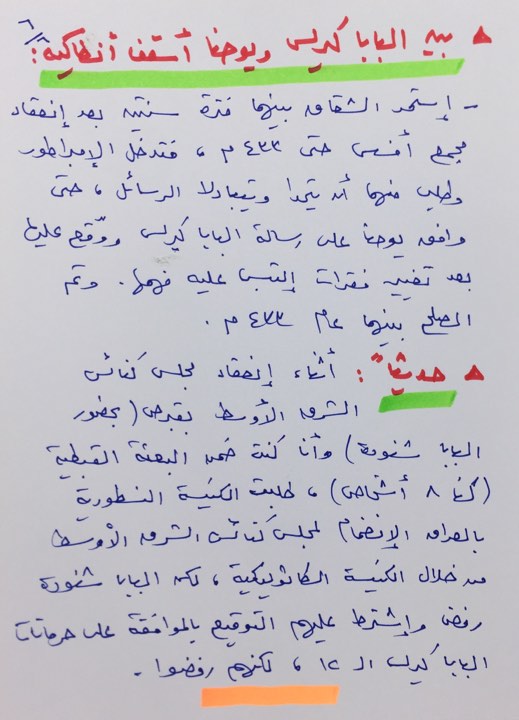 ٦
▲ بين البابا كيرلس ويوحنا أسقف أنطاكية:
- إستمر الشقاق بينهما فترة سنتين بعد إنعقاد
مجمع أفسس حتى ٤٣٣ م ، فتدخل الإمبراطور
وطلب منهما أن يتحدا ويتبادلا الرسائل ، حتى
وافق يوحنا على رسالة البابا كيرلس ووقّع عليها
بعد تغيير فقرات إلتبس عليه فهمها. وتم
الصلح بينهما عام ٤٣٣ م .
▲ حديثاً : أثناء إنعقاد مجلس كنائس
الشرق الأوسط بقبرص (بحضور
البابا شنودة) وأنا كنت ضمن البعثة القبطية
(كنا ٨ أشخاص) ، طلبت الكنيسة النسطورية
بالعراق الإنضمام لمجلس كنائس الشرق الأوسط
من خلال الكنيسة الكاثوليكية ، لكن البابا شنودة
رفض وإشترط عليهم التوقيع بالموافقة على حرمانات
البابا كيرلس الـ ١٢ ، لكنهم رفضوا .